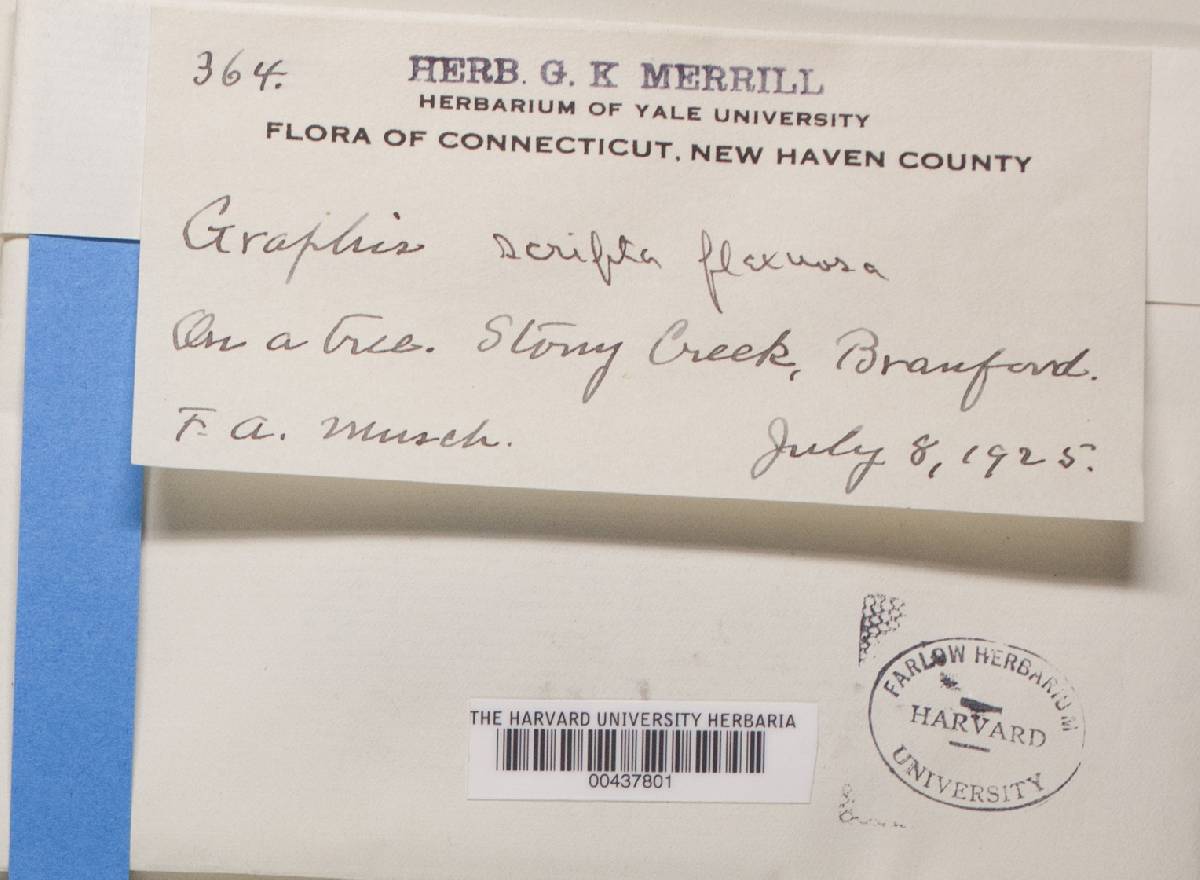 364.
HERB. G. K MERRILL
HERBARIUM OF YALE UNIVERSITY
FLORA OF CONNECTICUT, NEW HAVEN COUNTY
Graphis scripta flexuosa
On a tree. Stony Creek, Branford.
F. A. Musch.
July 8, 1925.
THE HARVARD UNIVERSITY HERBARIA
00437801
FARLOW HERBARIUM
HARVARD
UNIVERSITY